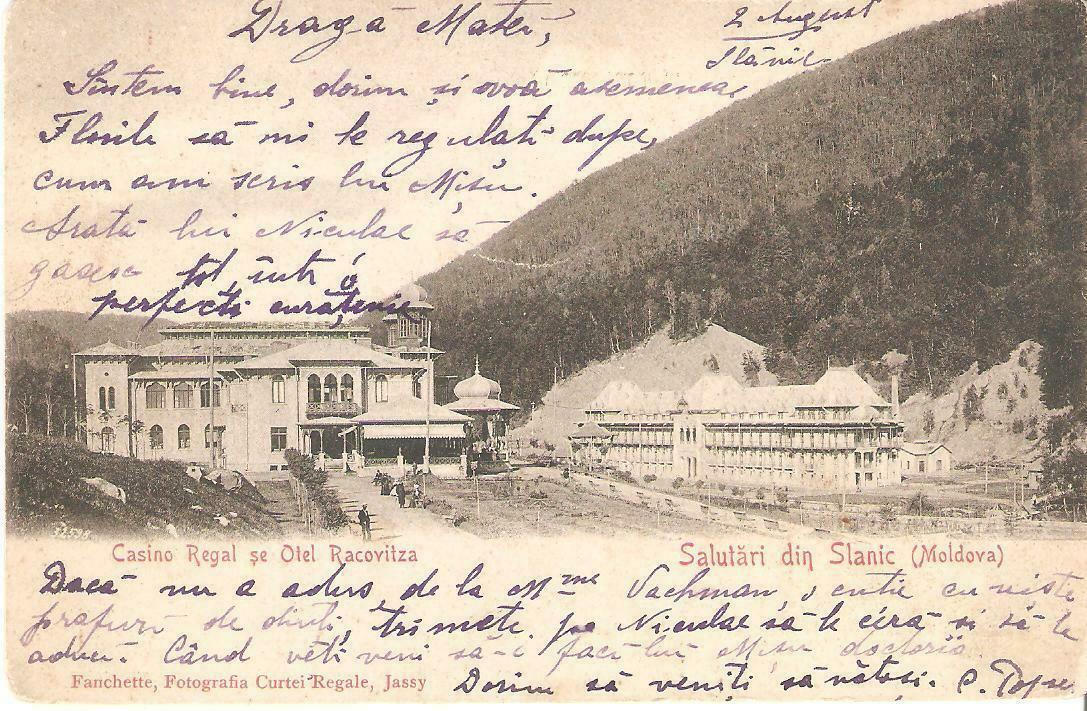 Dragă Matei,
2 August
Slănic
Sîntem bine, dorim și vouă asemenea,
Florile să mi le regulați dupe,
cum am scris lui Mișu.
Arată lui Niculae să
gasesc tot, într ó
perfectă curățenie
Casino Regal şe Otel Racovitza
Salutări din Slanic (Moldova)
Dacă nu a adus, de la Mme Vachman, o cutie cu niste
prafuri de dinți, trimete pe Niculae să le céră si să le
aducă. Când veți veni să-i faci lui Mișu doctoria.
Fanchette, Fotografia Curtei Regale, Jassy
Dorim să veniți sănătosi. C.